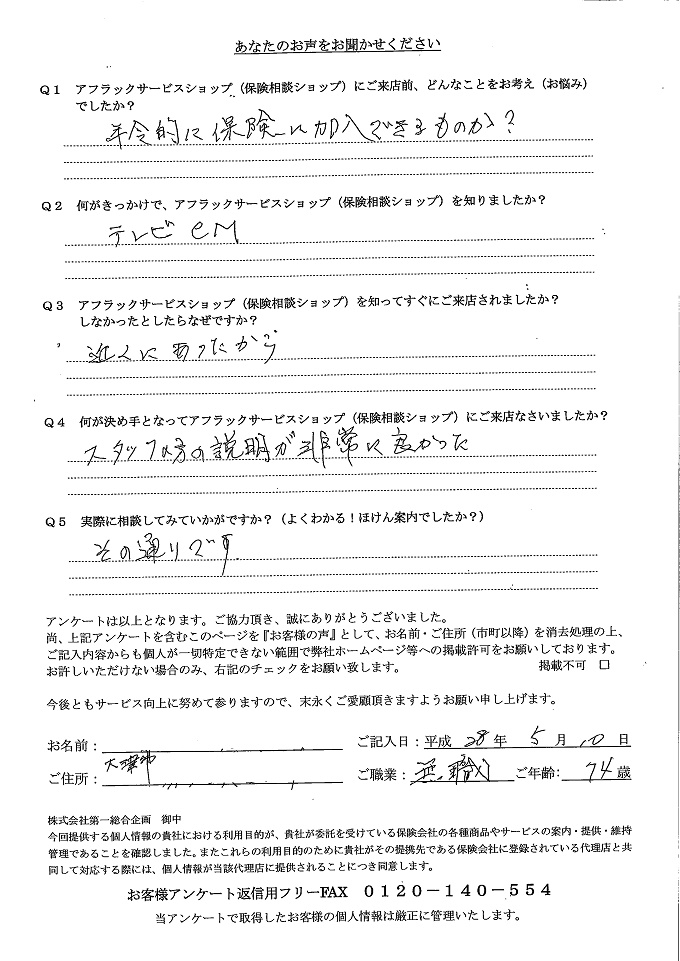 あなたのお声をお聞かせください
Q1 アフラックサービスショップ（保険相談ショップ）にご来店前、どんなことをお考え（お悩み）
でしたか？
年令的に保険に加入できるものか？
Q2 何がきっかけで、アフラックサービスショップ（保険相談ショップ）を知りましたか？
テレビCM
Q3 アフラックサービスショップ（保険相談ショップ）を知ってすぐにご来店されましたか？
しなかったとしたらなぜですか？
近くにあったから
Q4 何が決め手となってアフラックサービスショップ（保険相談ショップ）にご来店なさいましたか？
スタッフの方の説明が非常に良かった
Q5 実際に相談してみていかがですか？（よくわかる！ほけん案内でしたか？）
その通りです
アンケートは以上となります。ご協力頂き、誠にありがとうございました。
尚、上記アンケートを含むこのページを『お客様の声』として、お名前・ご住所（市町以降）を消去処理の上、
ご記入内容からも個人が一切特定できない範囲で弊社ホームページ等への掲載許可をお願いしております。
お許しいただけない場合のみ、右記のチェックをお願い致します。 掲載不可 □
今後ともサービス向上に努めて参りますので、末永くご愛顧頂きますようお願い申し上げます。
お名前： ご記入日：平成 28 年 5 月 10 日
ご住所： ご職業：無職 ご年齢：74 歳
株式会社第一総合企画 御中
今回提供する個人情報の貴社における利用目的が、貴社が委託を受けている保険会社の各種商品やサービスの案内・提供・維持
管理であることを確認しました。またこれらの利用目的のために貴社がその提携先である保険会社に登録されている代理店と共
同して対応する際には、個人情報が当該代理店に提供されることにつき同意します。
お客様アンケート返信用フリーFAX 0120－140－554
当アンケートで取得したお客様の個人情報は厳正に管理いたします。